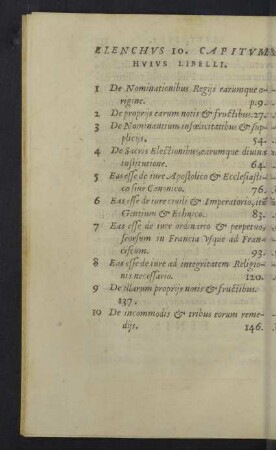 ELENCHVS 10. CAPITVM
HVIVS LIBELLI.
1 De Nominationibus Regijs earumque o-
rigine. p.9.
2 De proprijs earum notis & fructibus. 27.
3 De Nominantium infœlicitatibus & sup-
plicijs. 54.
4 De Sacris Electionibus, earumque diuina
institutione. 64.
5 Eas esse de iure Apostolico & Ecclesiasti-
co siue Canonico. 76.
6 Eas esse de iure ciuili & Imperatorio, itē
Gentium & Ethnico. 83.
7 Eas esse de iure ordinario & perpetuo,
seorsum in Francia vsque ad Fran-
ciscum. 93.
8 Eas esse de iure ad integritatem Religio-
nis necessario. 120.
9 De illarum proprijs notis & fructibus.
137.
10 De incommodis & tribus eorum reme-
dijs. 146.